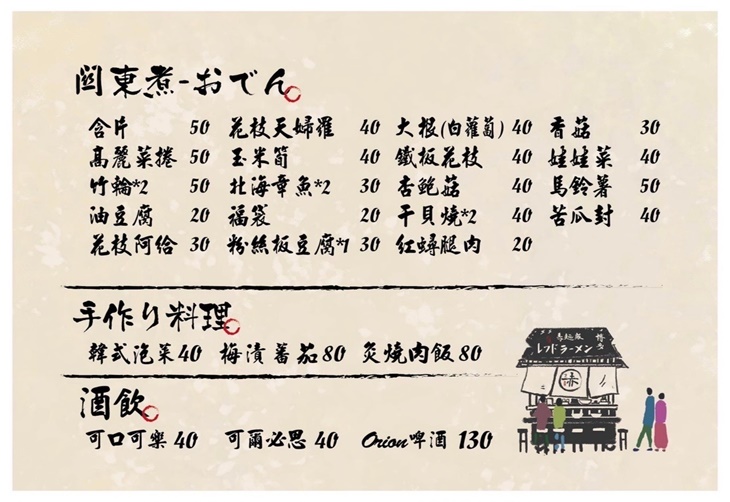 關東煮-おでん
含片 50 花枝天婦羅 40 大根(白蘿蔔) 40 香菇 30
高麗菜捲 50 玉米筍 40 鐵板花枝 40 娃娃菜 40
竹輪*2 50 北海章魚*2 30 杏鮑菇 40 馬鈴薯 50
油豆腐 20 福袋 20 干貝燒*2 40 苦瓜封 40
花枝阿給 30 粉絲板豆腐*1 30 紅蟳腿肉 20
手作り料理
韓式泡菜 40 梅漬蕃茄 80 炙燒肉飯 80
レッドラーメン
赤
酒飲
可口可樂 40 可爾必思 40 Orion啤酒 130